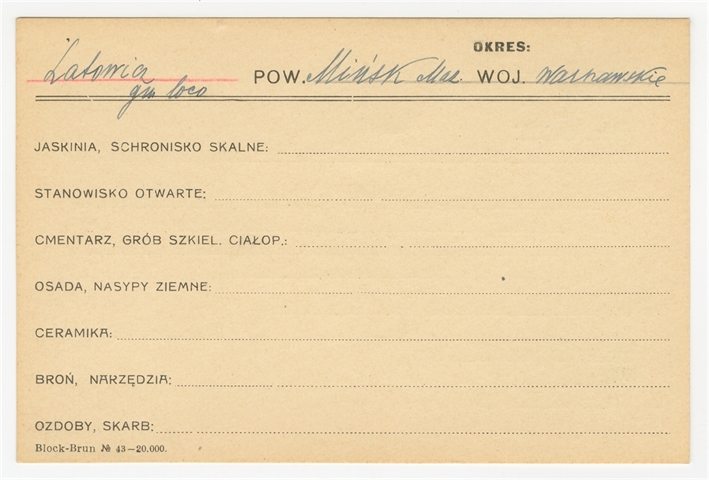 OKRES:
Latowia POW. Mińsk Maz. WOJ. Warszawskie
gm loco
JASKINIA, SCHRONISKO SKALNE:
STANOWISKO OTWARTE:
CMENTARZ, GRÓB SZKIEL. CIAŁOP.:
OSADA, NASYPY ZIEMNE:
CERAMIKA:
BROŃ, NARZĘDZIA:
OZDOBY, SKARB:
Block-Brun № 43—20.000.